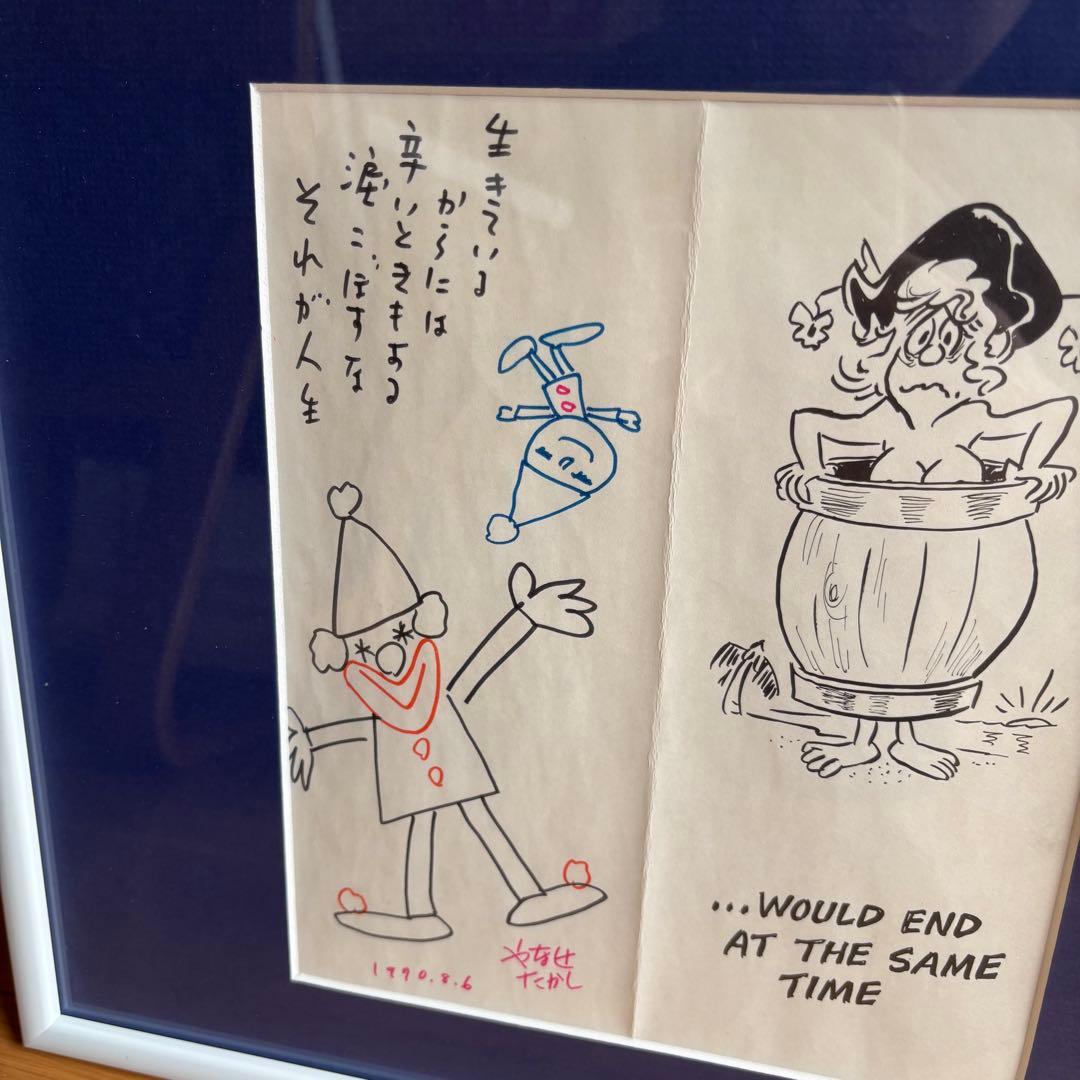 生きている
からには
辛いときもある
涙こぼすな
それが人生
1990.8.6
やなせ
たかし
...WOULD END
AT THE SAME
TIME